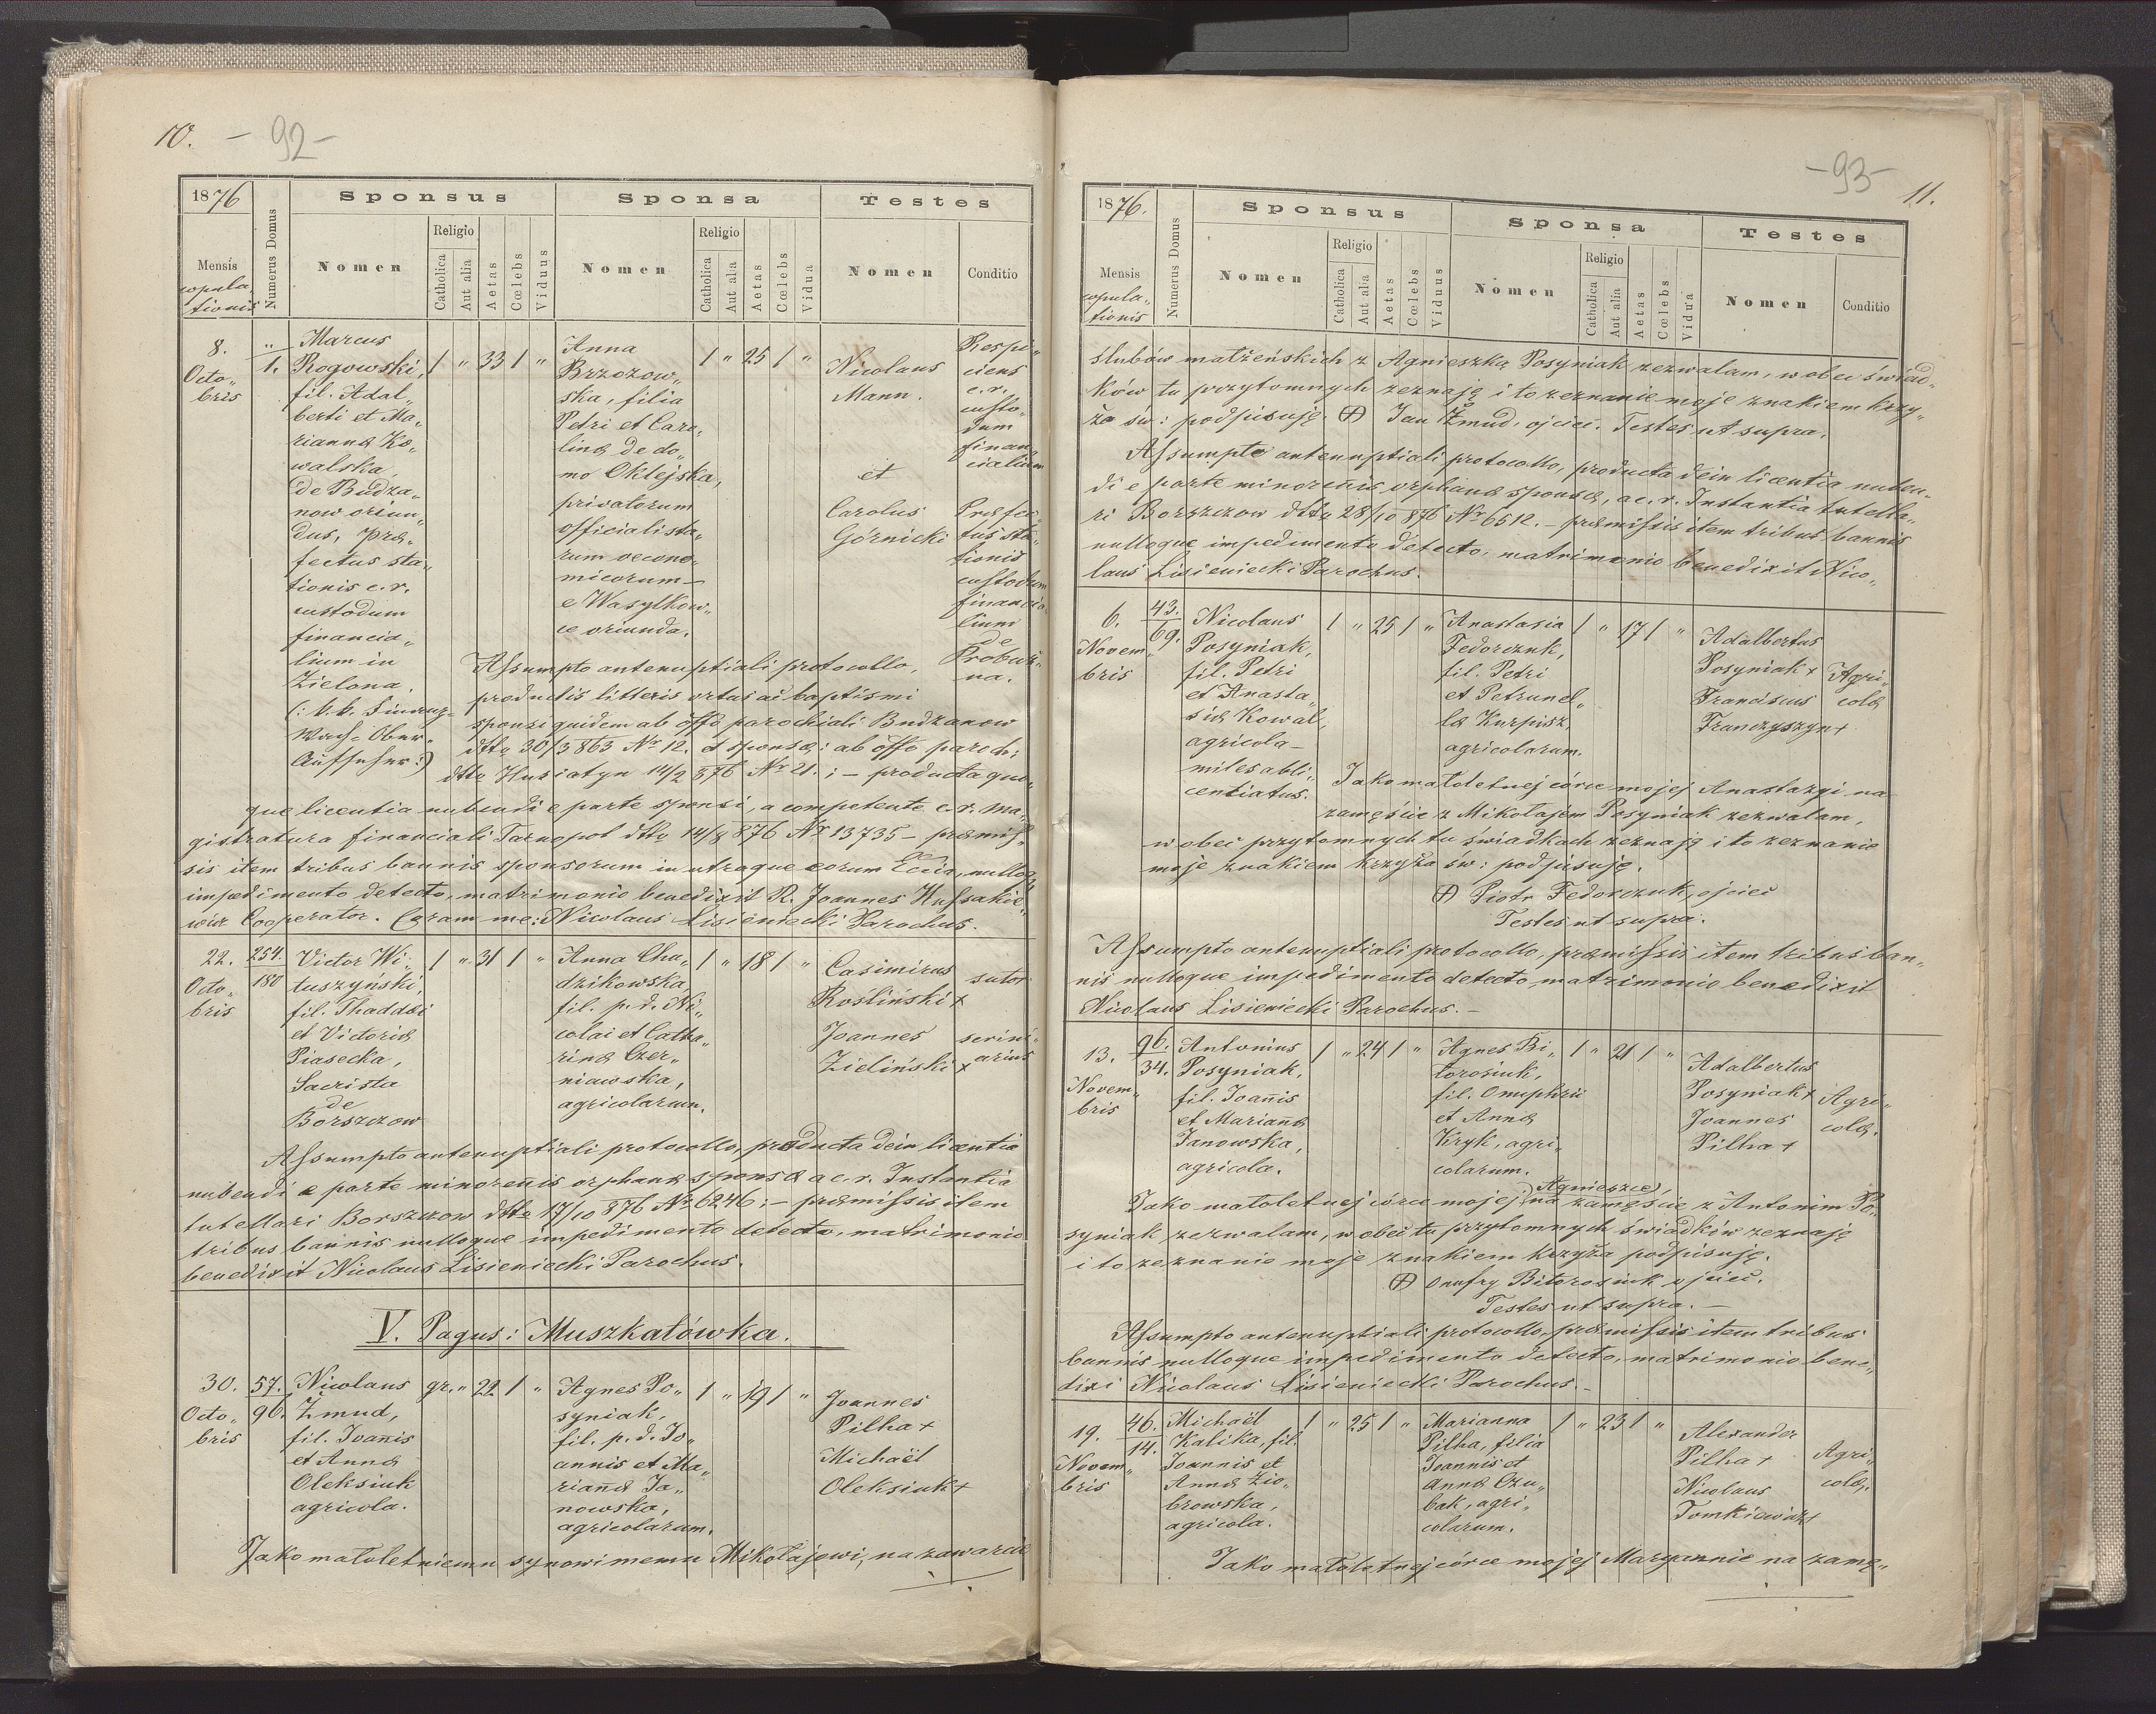 10. - 92 -
1876
Sponsus
Sponsa
Testes
Mensis
copula„
tionis
Numerus Domus
Nomen
Religio
Catholica
Aut alia
Aetas
Cœlebs
Viduus
Nomen
Religio
Catholica
Aut alia
Aetas
Cœlebs
Vidua
Nomen
Conditio
8.
Octo„
bris
„
1.
Marcus
Rogowski,
fil. Adal„
berti et Ma„
rianna Ko„
walska,
de Budza„
now oriun„
dus, præ„
fectus sta„
tionis c. r.
custodum
financia„
lium in
Zielona.
(: k. k. Finanz-
Wach-Ober-
Aufseher:)
1 „ 33 1 „
Anna
Brzozow„
ska, filia
Petri et Caro„
lina de do„
mo Oklejska,
privatorum
officialista„
rum oecono„
micorum –
e Wasylkow„
ce oriunda.
1 „ 25 1 „
Nicolaus
Mann.
et
Carolus
Górnicki
Respi„
ciens
c. r.
custo„
dum
finan„
cialium
Præfec„
tus sta„
tionis
custodum
financia„
lium
de
Probuż„
na.
Assumpto antenuptiali protocollo,
productis litteris ortus ac baptismi
sponsi quidem ab offo parochiali Budzanow
dtto 30/3 863 Nr 12. et sponsæ: ab offo paroch:
dtto Husiatyn 14/2 876 Nr 21.; – producta quo„
que licentia nubendi e parte sponsi, a competente c. r. Ma„
gistratura financiali Tarnopol dtto 14/8 876 Nr 13735 – præmis„
sis item tribus bannis sponsorum in utraque eorum Eccia, nulloque
impedimento detecto, matrimonio benedixit R. Joannes Hussakie„
wicz Cooperator. Coram me: Nicolaus Lisieniecki Parochus.
22.
Octo„
bris
254.
180
Victor Wi„
tuszyński,
fil. Thaddæi
et Victoria
Piasecka,
Sacrista
de
Borszczow
1 „ 31 1 „
Anna Chu„
dzikowska,
fil. p. d. Ni„
colai et Catha„
rina Czer„
niawska,
agricolarum.
1 „ 18 1 „
Casimirus
Rośliński +
Joannes
Zieliński +
sutor
scrini„
arius
Assumpto antenuptiali protocollo, producta dein licentia
nubendi e parte minorenis orphanæ sponsæ a c. r. Instantia
tutellari Borszczow dtto 17/10 876 Nr 6246; – præmissis item
tribus bannis nulloque impedimento detecto, matrimonio
benedixit Nicolaus Lisieniecki Parochus.
V. Pagus: Muszkatówka.
30.
Octo„
bris
57.
96.
Nicolaus
Żmud,
fil. Joañis
et Anna
Oleksiuk
agricola.
gr. „ 22 1 „
Agnes Po„
syniak,
fil. p. d. Jo„
annis et Ma„
riaña Ja„
nowska,
agricolarum.
1 „ 19 1 „
Joannes
Pilha +
Michaël
Oleksiuk +
Jako małoletniemu synowi memu Mikołajowi, na zawarcie
- 93 -
11.
1876.
Sponsus
Sponsa
Testes
Mensis
copula„
tionis
Numerus Domus
Nomen
Religio
Catholica
Aut alia
Aetas
Cœlebs
Viduus
Nomen
Religio
Catholica
Aut alia
Aetas
Cœlebs
Vidua
Nomen
Conditio
ślubów małżeńskich z Agnieszką Posyniak zezwalam, w obec świad„
ków tu przytomnych zeznaję i to zeznanie moje znakiem krzy„
ża św: podpisuję. (+) Jan Żmud, ojciec. Testes ut supra.
Assumpto antenuptiali protocollo, producta dein licentia nuben„
di e parte minoreñis orphanæ sponsæ, a c. r. Instantia tutella„
ri Borszczow dtto 28/10 876 Nr 6512. – præmissis item tribus bannis
nulloque impedimento detecto, matrimonio benedixit Nico„
laus Lisieniecki Parochus.
6.
Novem„
bris
43.
69.
Nicolaus
Posyniak,
fil. Petri
et Anasta„
sia Kowal,
agricola –
miles abli„
centiatus.
1 „ 25 1 „
Anastasia
Fedorczuk,
fil. Petri
et Petrunel„
la Kurpisz,
agricolarum.
1 „ 17 1 „
Adalbertus
Posyniak +
Franciscus
Franczyszyn +
Agri„
colæ
Jako małoletnej córce mojej Anastazyi na
zamęście z Mikołajem Posyniak zezwalam,
w obec przytomnych tu świadkach zeznaję i to zeznanie
moje znakiem krzyża św: podpisuję.
(+) Piotr Fedorczuk, ojciec
Testes ut supra.
Assumpto antenuptiali protocollo, præmissis item tribus ban„
nis nulloque impedimento detecto matrimonio benedixit
Nicolaus Lisieniecki Parochus. –
13.
Novem„
bris
96.
34.
Antonius
Posyniak,
fil. Joañis
et Mariaña
Janowska,
agricola.
1 „ 24 1 „
Agnes Bi„
torosiuk,
fil. Onuphrii
et Anna
Kryk, agri„
colarum.
1 „ 21 1 „
Adalbertus
Posyniak +
Joannes
Pilha +
Agri„
colæ.
Agnieszce,
Jako małoletnej córce mojej na zamęście z Antonim Po„
syniak zezwalam, w obec tu przytomnych świadków zeznaję
i to zeznanie moje znakiem krzyża podpisuję.
(+) Onufry Bitorosiuk ojciec.
Testes ut supra. –
Assumpto antenuptiali protocollo, præmissis item tribus
bannis nulloque impedimento detecto, matrimonio bene„
dixi Nicolaus Lisieniecki Parochus. –
19.
Novem„
bris
46.
14.
Michaël
Kalika, fil.
Joannis et
Anna Zio„
browska,
agricola.
1 „ 25 1 „
Marianna
Pilha, filia
Joannis et
Anna Czu„
bak, agri„
colarum.
1 „ 23 1 „
Alexander
Pilha +
Nicolaus
Tomkiewicz +
Agri„
colæ.
Jako małoletnej córce mojej Maryannie na zamę„